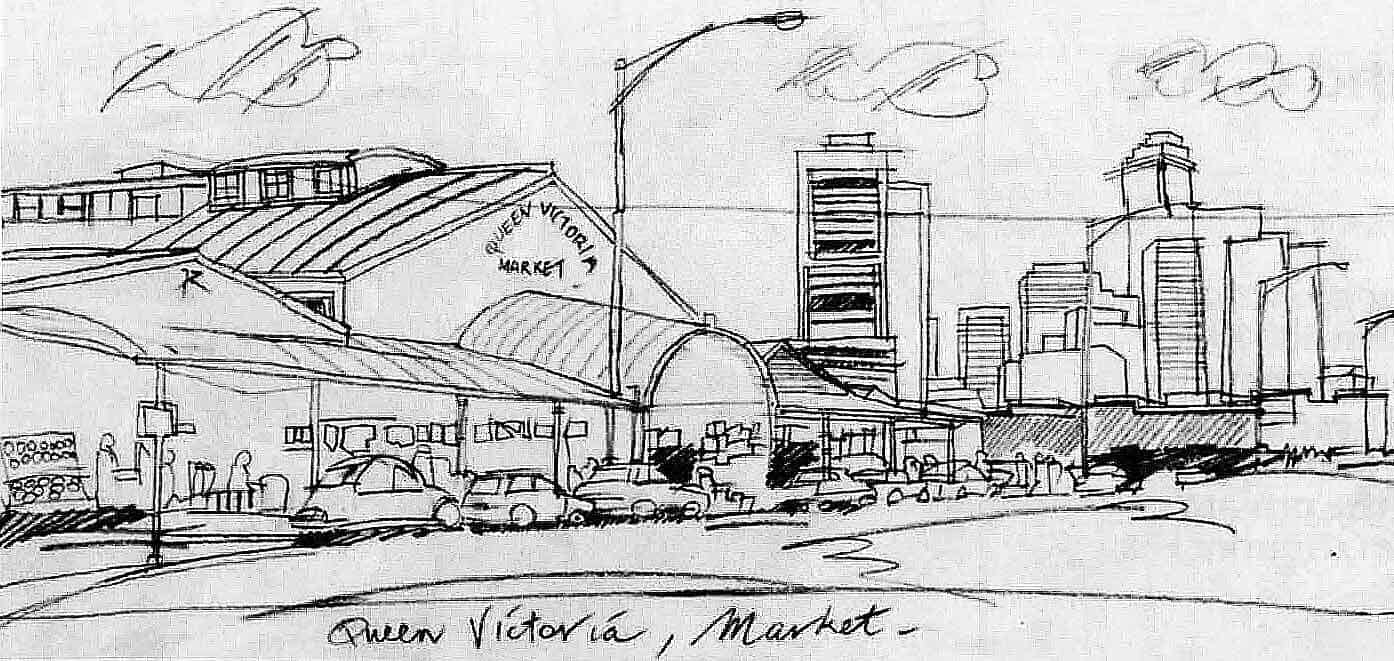 QUEEN VICTORIA
MARKET
Queen Victoria, Market -